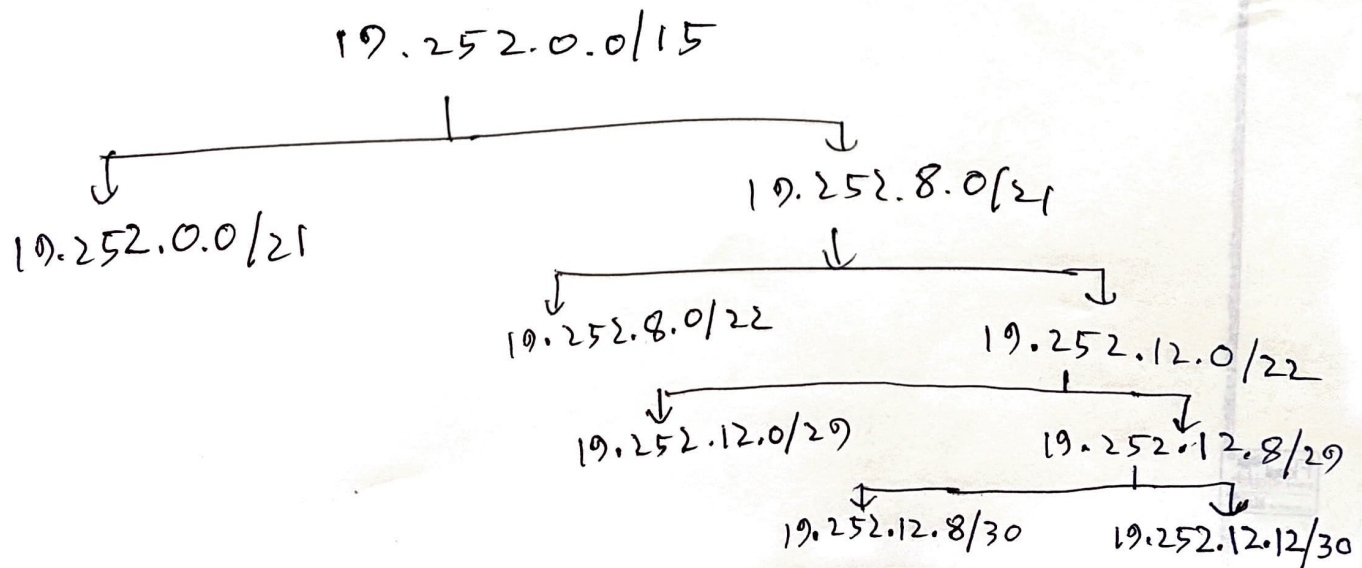 19.252.0.0/15
19.252.0.0/21
19.252.8.0/21
19.252.8.0/22
19.252.12.0/22
19.252.12.0/29
19.252.12.8/29
19.252.12.8/30
19.252.12.12/30